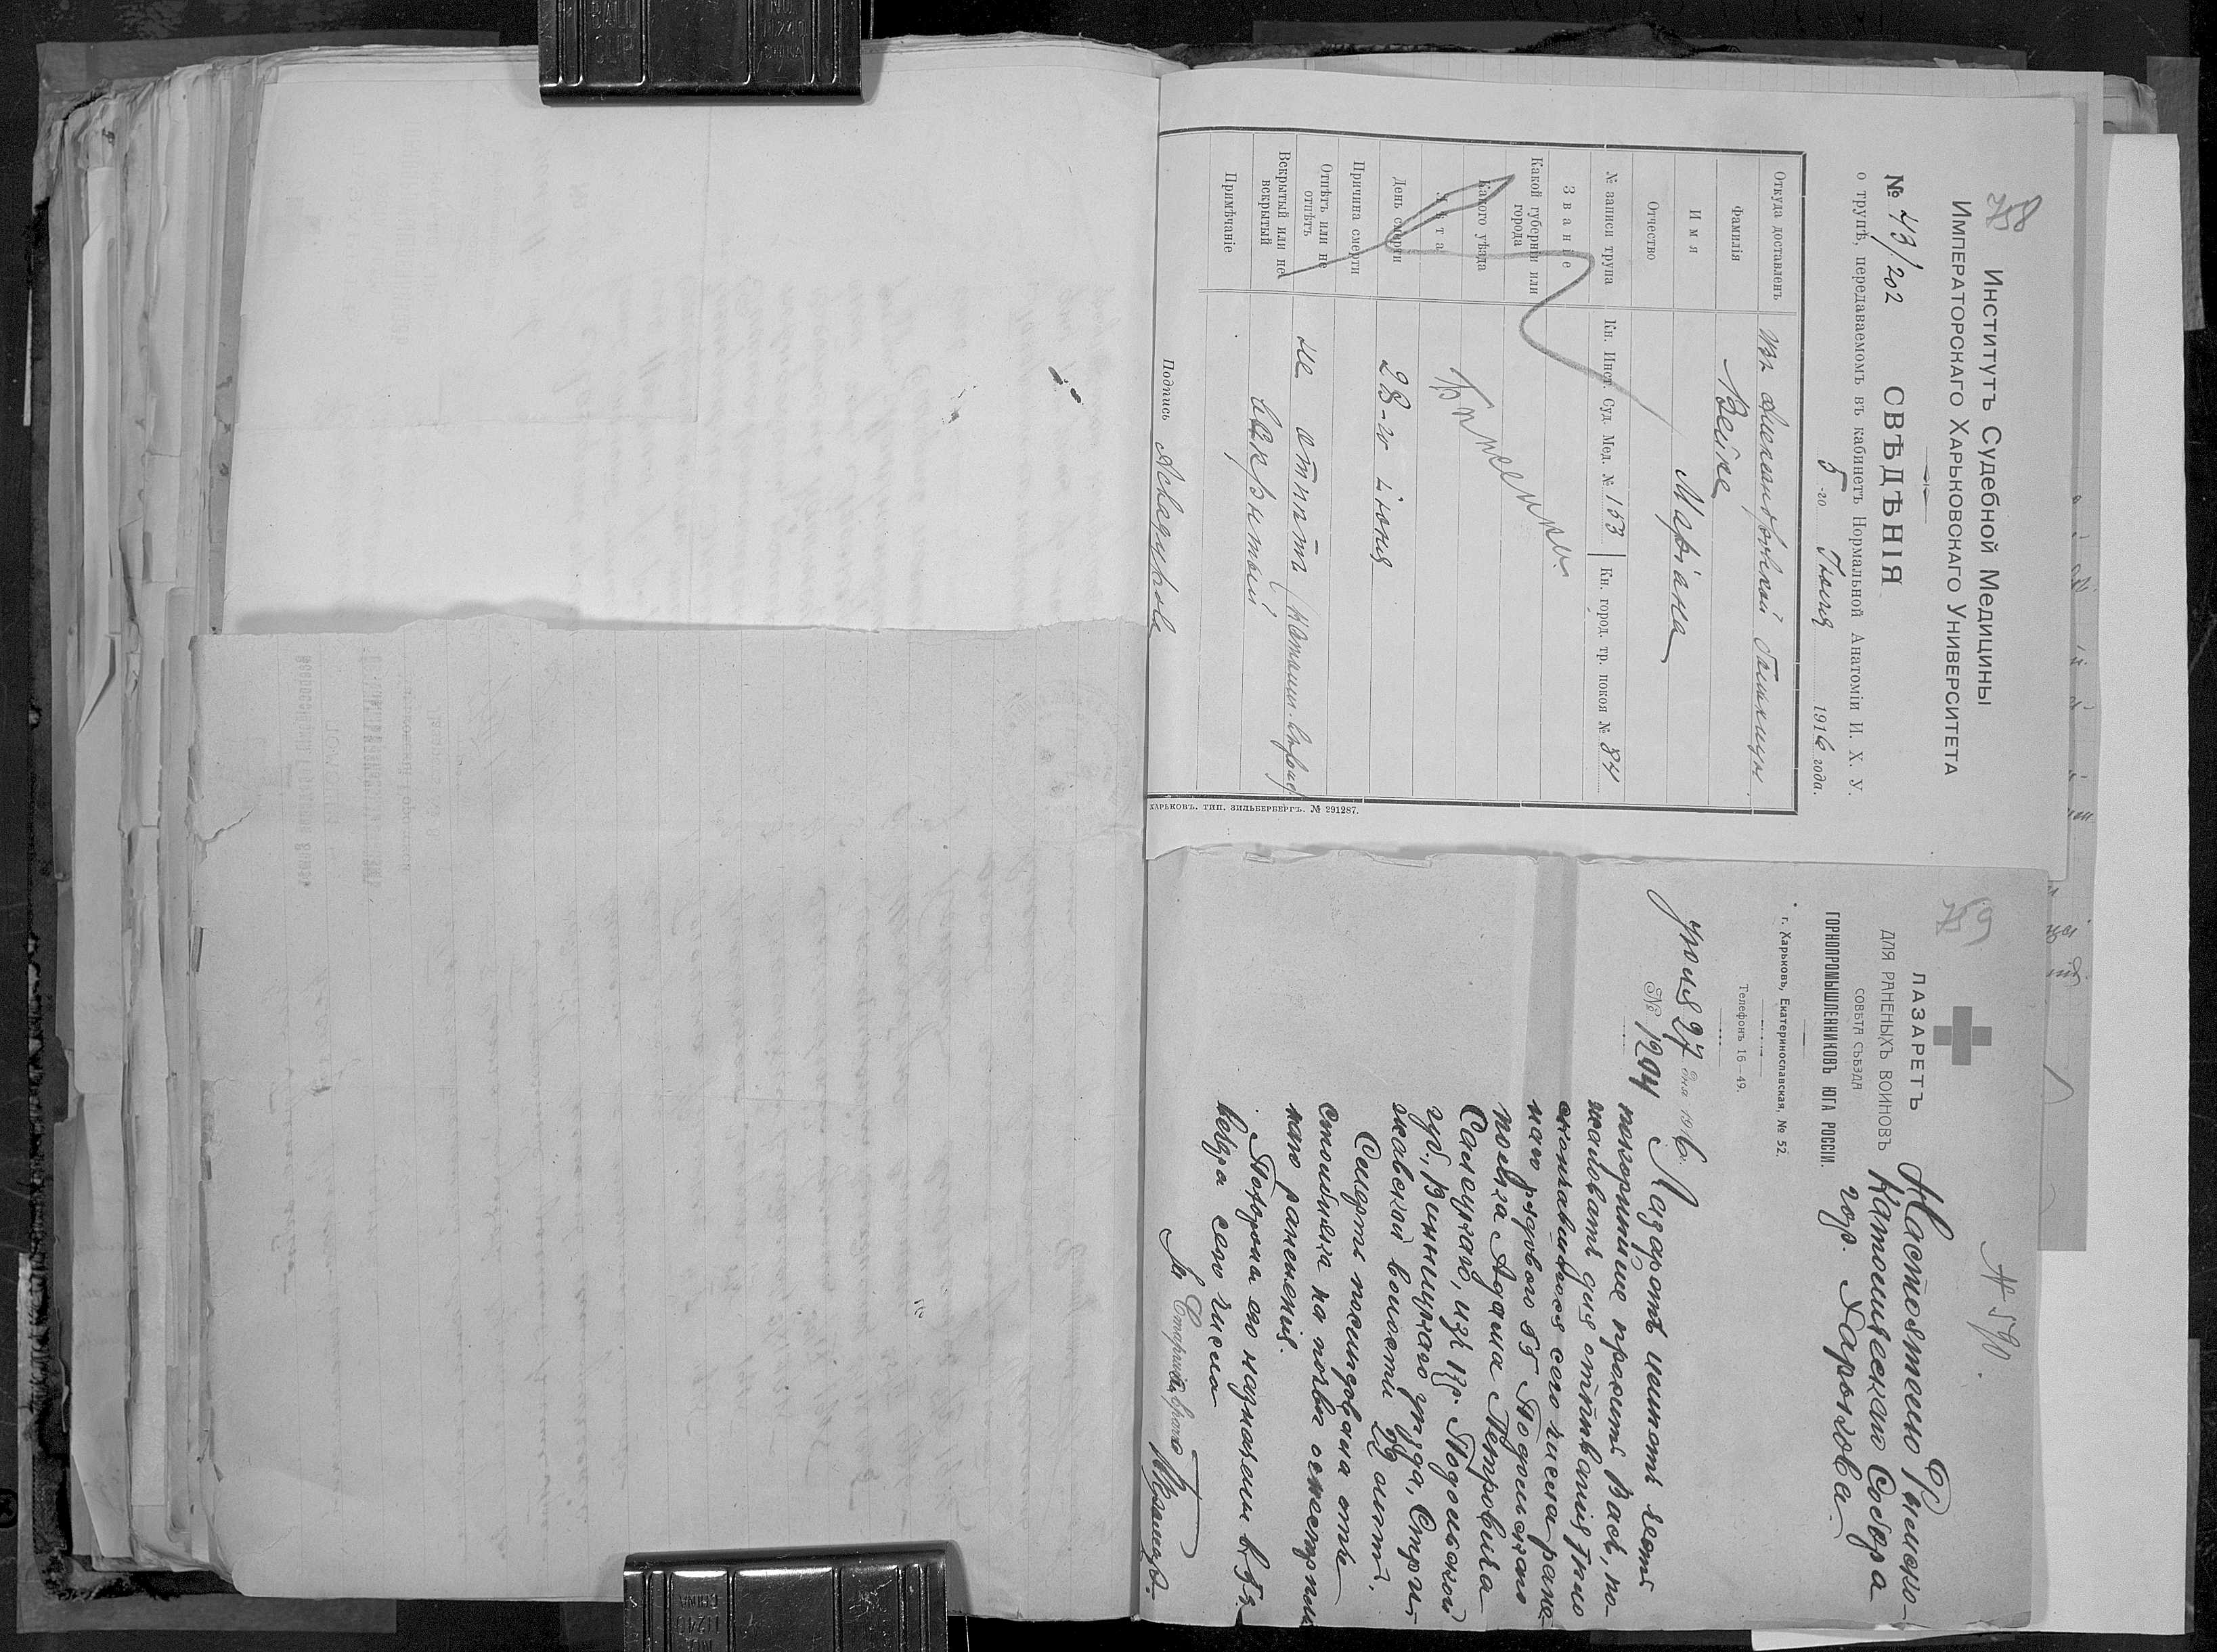 58
Институтъ Судебной Медицины
Императорскаго Харьковскаго Университета
№ 43/202 СВѢДѢНІЯ
о трупѣ, передаваемомъ въ кабинетъ Нормальной Анатоміи И. Х. У.
5-го Іюля 1916 года.
Откуда доставленъ Изъ Александровской больницы
Фамилія Вейке
Имя Маріана
Отчество
№ записи трупа Кн. Инст. Суд. Мед. № 153 Кн. город. тр. покоя № 84
Званіе
Какой губерніи или города
Какого уѣзда
Лѣта
День смерти 28-го іюня
Причина смерти
Отпѣтъ или не отпѣтъ не отпѣтъ
Вскрытый или не вскрытый вскрытый
Примѣчаніе
Подпись
ХАРЬКОВЪ. ТИП. ЗИЛЬБЕРБЕРГЪ. № 291287.
59
№ 59.
ЛАЗАРЕТЪ
ДЛЯ РАНЕНЫХЪ ВОИНОВЪ
СОВѢТА СЪѢЗДА
ГОРНОПРОМЫШЛЕННИКОВЪ ЮГА РОССІИ.
г. Харьковъ, Екатеринославская, № 52.
Телефонъ 16—49.
Іюля 27 дня 1916.
№ 1204
Настоятелю Римско-
Католическаго Собора
гор. Харькова.
Лазаретъ имѣетъ честь
покорнѣйше просить Васъ, по-
жаловать для отпѣванія тѣло
скончавшагося сего числа ране-
наго рядового 55 Подольскаго
полка Адама Петровича
Самоукаго, изъ кр. Подольской
губ., Винницкаго уѣзда, Стри-
жавской волости 29 лѣтъ.
Смерть послѣдовала отъ
столбняка на почвѣ огнестрѣль-
наго раненія.
Похороны его назначены въ 5 ч.
вечера сего числа
За Старшій врачъ